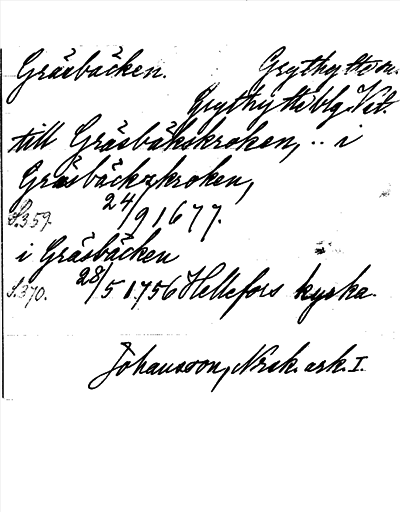 Gräsbäcken. Grythyttesn.
Grythytteblg. Vstl.
till Gräsbäkskroken, .. i
Gräsbäckzkroken,
S.359. 24/9 1677.
i Gräsbäcken
S.370. 28/5 1756 Hellefors kyrka.
Johansson, Norsk. ark. I.